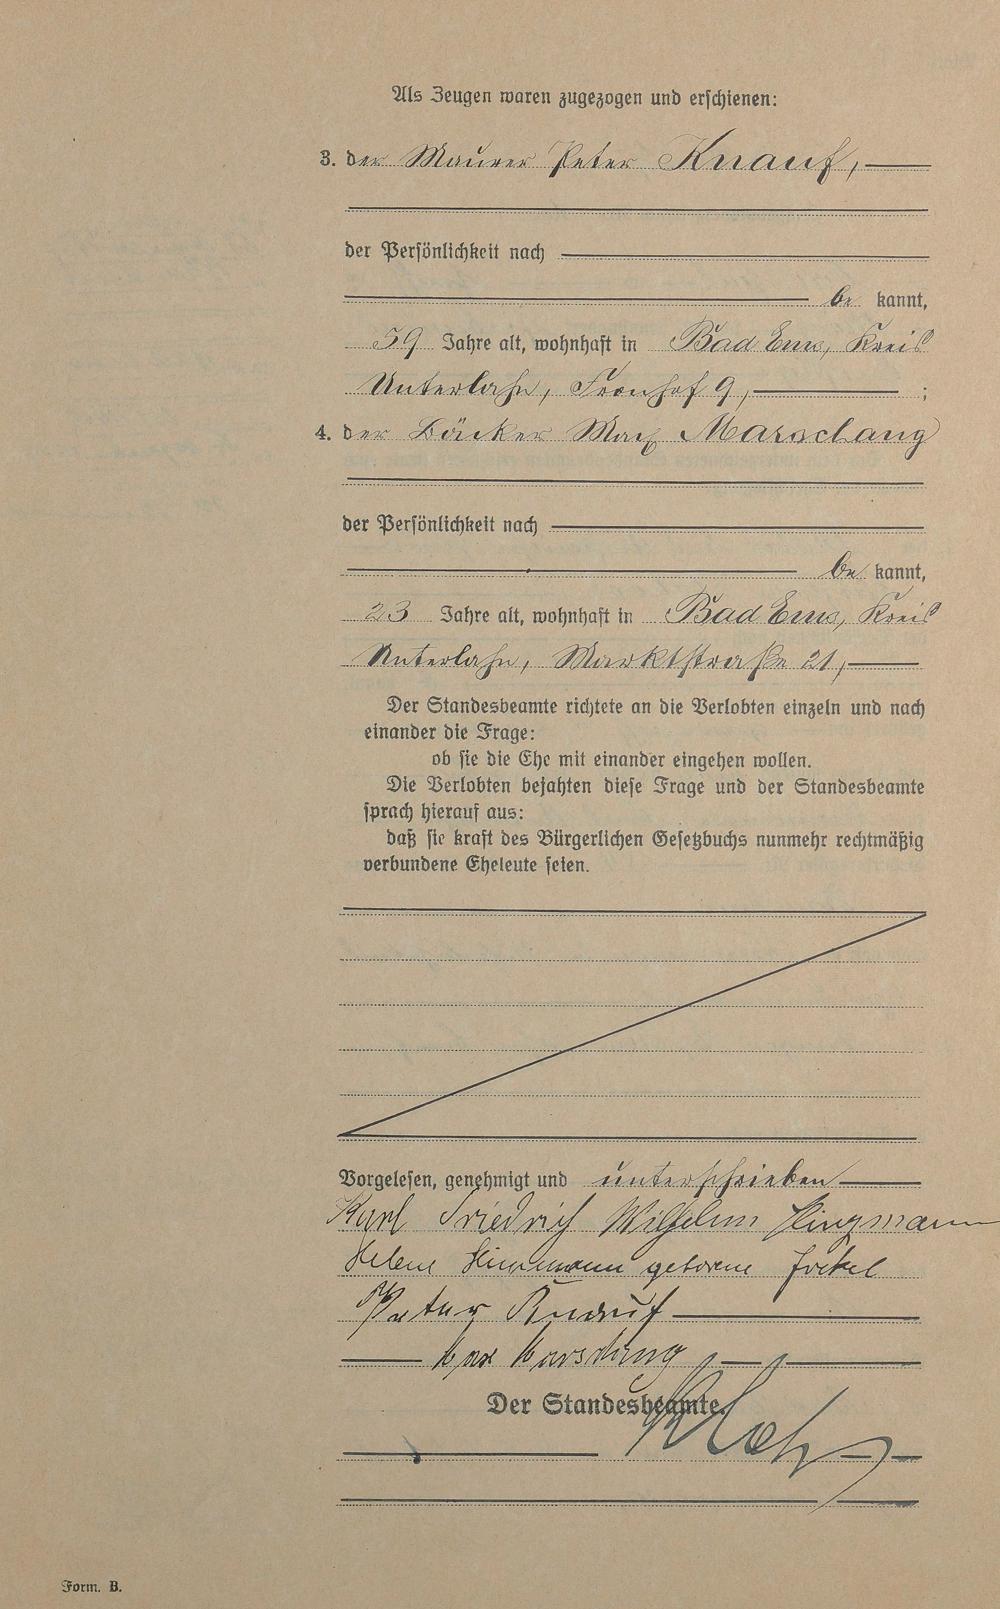 Als Zeugen waren zugezogen und erschienen:
3. der Maurer Peter Knauf,
der Persönlichkeit nach
be kannt,
59 Jahre alt, wohnhaft in Bad Ems, Kreis
Unterlahn, Fronhof 9, ;
4. der Bäcker Max Marschang
der Persönlichkeit nach
be kannt,
23 Jahre alt, wohnhaft in Bad Ems, Kreis
Unterlahn, Marktstraße 21,
Der Standesbeamte richtete an die Verlobten einzeln und nach
einander die Frage:
ob sie die Ehe mit einander eingehen wollen.
Die Verlobten bejahten diese Frage und der Standesbeamte
sprach hierauf aus:
daß sie kraft des Bürgerlichen Gesetzbuchs nunmehr rechtmäßig
verbundene Eheleute seien.
Vorgelesen, genehmigt und unterschrieben
Karl Friedrich Wilhelm
Helene geborene
Peter Knauf
Max Marschang
Der Standesbeamte.
Form. B.